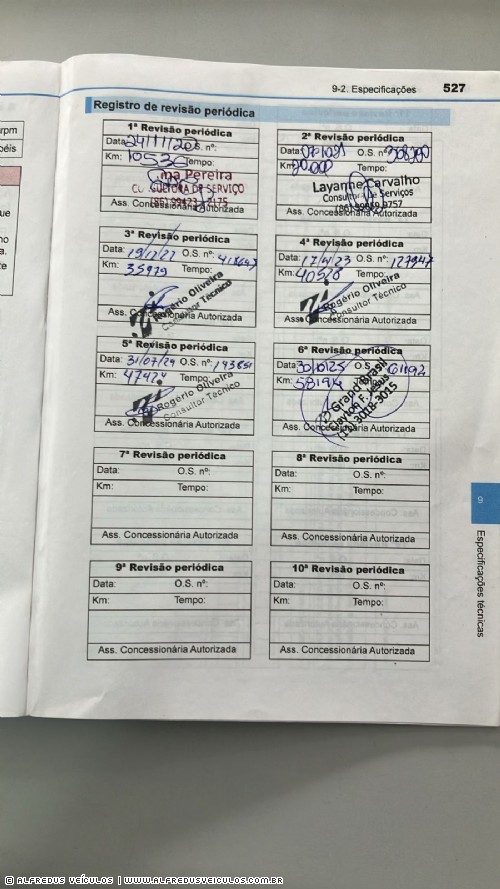 rpm
9-2. Especificações 527
Registro de revisão periódica
1ª Revisão periódica
Data: O.S. nº:
Km: 10536 Tempo:
ma Pereira
CONSULTORA DE SERVIÇO
Ass. Concessionária Autorizada
2ª Revisão periódica
Data: O.S. nº:
Km: Tempo:
Layanne Carvalho
Consultora de Serviços
Ass. Concessionária Autorizada
3ª Revisão periódica
Data: 19/12/22 O.S. nº:
Km: 35979 Tempo:
Rogério Oliveira
Consultor Técnico
Ass. Concessionária Autorizada
4ª Revisão periódica
Data: O.S. nº:
Km: 40528 Tempo:
Rogério Oliveira
Consultor Técnico
Ass. Concessionária Autorizada
5ª Revisão periódica
Data: 31/07/24 O.S. nº:
Km: 47424 Tempo:
Rogério Oliveira
Consultor Técnico
Ass. Concessionária Autorizada
6ª Revisão periódica
Data: O.S.
Km: Tempo:
Grand Brasil
Clayton F. Jesus
Ass. Concessionária Autorizada
7ª Revisão periódica
Data: O.S. nº:
Km: Tempo:
Ass. Concessionária Autorizada
8ª Revisão periódica
Data: O.S. nº:
Km: Tempo:
Ass. Concessionária Autorizada
9ª Revisão periódica
Data: O.S. nº:
Km: Tempo:
Ass. Concessionária Autorizada
10ª Revisão periódica
Data: O.S. nº:
Km: Tempo:
Ass. Concessionária Autorizada
9
Especificações técnicas
© ALFREDUS VEÍCULOS | WWW.ALFREDUSVEICULOS.COM.BR